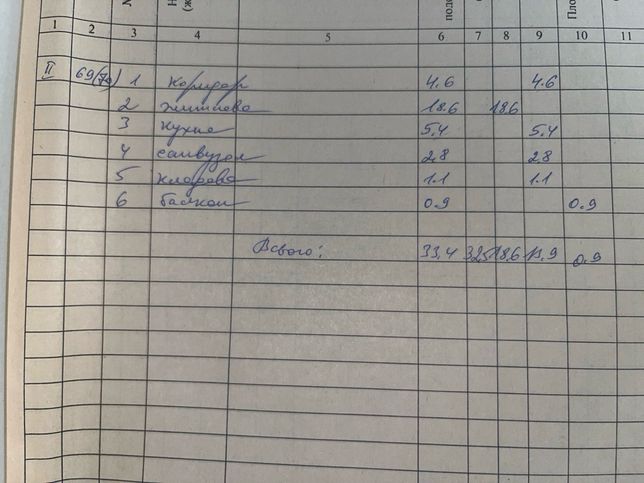 подс
Пло
1 2 3 4 5 6 7 8 9 10 11
II 69(70) 1 Коридор 4.6 4.6
2 житлова 18.6 18.6
3 Кухня 5.4 5.4
4 санвузол 2.8 2.8
5 кладова 1.1 1.1
6 балкон 0.9 0.9
Всього: 33,4 32,5 18,6 13.9 0.9